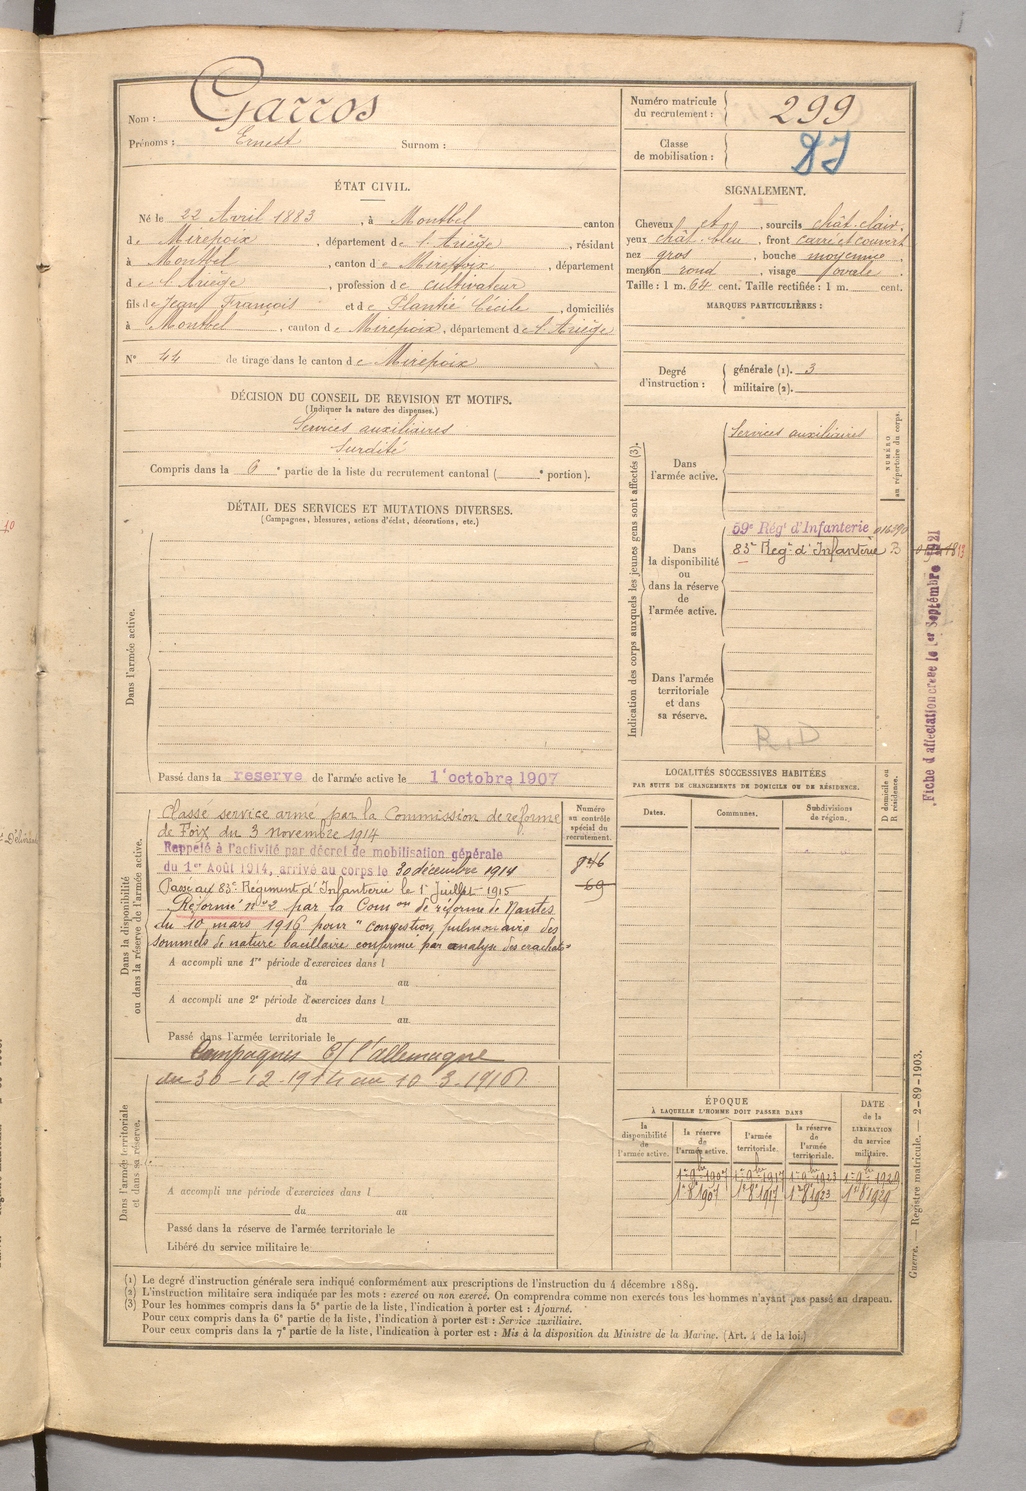 Nom : Garros
Prénoms : Ernest Surnom :
Numéro matricule du recrutement : 299
Classe de mobilisation :
ÉTAT CIVIL.
Né le 22 Avril 1883, à Montbel canton
de Mirepoix, département de l'Ariège, résidant
à Montbel, canton de Mirepoix, département
de l'Ariège, profession de cultivateur
fils de Jean François et de Plantié Cécile, domiciliés
à Montbel, canton de Mirepoix, département de l'Ariège
N° 44 de tirage dans le canton de Mirepoix
SIGNALEMENT.
Cheveux, sourcils chât. clair,
yeux chât. bleu, front carré et couvert
nez gros, bouche moyenne,
menton rond, visage ovale.
Taille : 1 m. 64 cent. Taille rectifiée : 1 m. cent.
MARQUES PARTICULIÈRES :
Degré d'instruction : générale (1). 3
militaire (2).
DÉCISION DU CONSEIL DE REVISION ET MOTIFS.
(Indiquer la nature des dispenses.)
Services auxiliaires
Surdité
Compris dans la 6e partie de la liste du recrutement cantonal ( e portion).
DÉTAIL DES SERVICES ET MUTATIONS DIVERSES.
(Campagnes, blessures, actions d'éclat, décorations, etc.)
Dans l'armée active.
Passé dans la reserve de l'armée active le 1' octobre 1907
Indication des corps auxquels les jeunes gens sont affectés (3).
NUMÉRO au répertoire du corps.
Dans l'armée active.
Services auxiliaires
Dans la disponibilité ou dans la réserve de l'armée active.
59e Régt d'Infanterie
83e Régt d'Infanterie
Dans l'armée territoriale et dans sa réserve.
R.D
Fiche d'affectation créée le 1er Septembre 1921
LOCALITÉS SUCCESSIVES HABITÉES
PAR SUITE DE CHANGEMENTS DE DOMICILE OU DE RÉSIDENCE.
Dates. Communes. Subdivisions de région. D domicile ou R résidence.
Dans la disponibilité ou dans la réserve de l'armée active.
Numéro au contrôle spécial du recrutement.
846
69
Classé service armé par la Commission de réforme
de Foix du 3 novembre 1914
Rappelé à l'activité par décret de mobilisation générale
du 1er Août 1914, arrivé au corps le 30 décembre 1914
Passé au 83e Régiment d'Infanterie le 1r Juillet 1915
Réformé n° 2 par la Comon de réforme de Nantes
du 10 mars 1916 pour "congestion pulmonaire des
sommets de nature bacillaire confirmée par analyse des crachats"
A accompli une 1re période d'exercices dans l
du au
A accompli une 2e période d'exercices dans l
du au
Passé dans l'armée territoriale le
Campagnes C/ l'Allemagne
du 30-12-1914 au 10-3-1916
Dans l'armée territoriale et dans sa réserve.
A accompli une période d'exercices dans l
du au
Passé dans la réserve de l'armée territoriale le
Libéré du service militaire le
ÉPOQUE
À LAQUELLE L'HOMME DOIT PASSER DANS
DATE de la LIBÉRATION du service militaire.
la disponibilité de l'armée active. la réserve de l'armée active. l'armée territoriale. la réserve de l'armée territoriale.
1er 9bre 1907 1er 9bre 1917 1er 9bre 1923 1er 9bre 1929
1er 8e 1907 1er 8e 1917 1er 8e 1923 1er 8e 1929
Guerre. — Registre matricule. — 2-89-1903.
(1) Le degré d'instruction générale sera indiqué conformément aux prescriptions de l'instruction du 4 décembre 1889.
(2) L'instruction militaire sera indiquée par les mots : exercé ou non exercé. On comprendra comme non exercés tous les hommes n'ayant pas passé au drapeau.
(3) Pour les hommes compris dans la 5e partie de la liste, l'indication à porter est : Ajourné.
Pour ceux compris dans la 6e partie de la liste, l'indication à porter est : Service auxiliaire.
Pour ceux compris dans la 7e partie de la liste, l'indication à porter est : Mis à la disposition du Ministre de la Marine. (Art. 4 de la loi.)